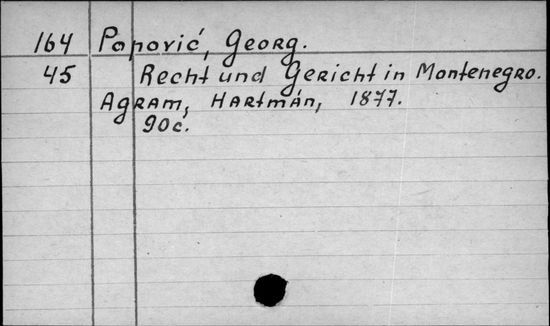 164 Popović, Georg.
45 Recht und Gericht in Montenegro.
Agram, Hartmán, 1877.
90c.